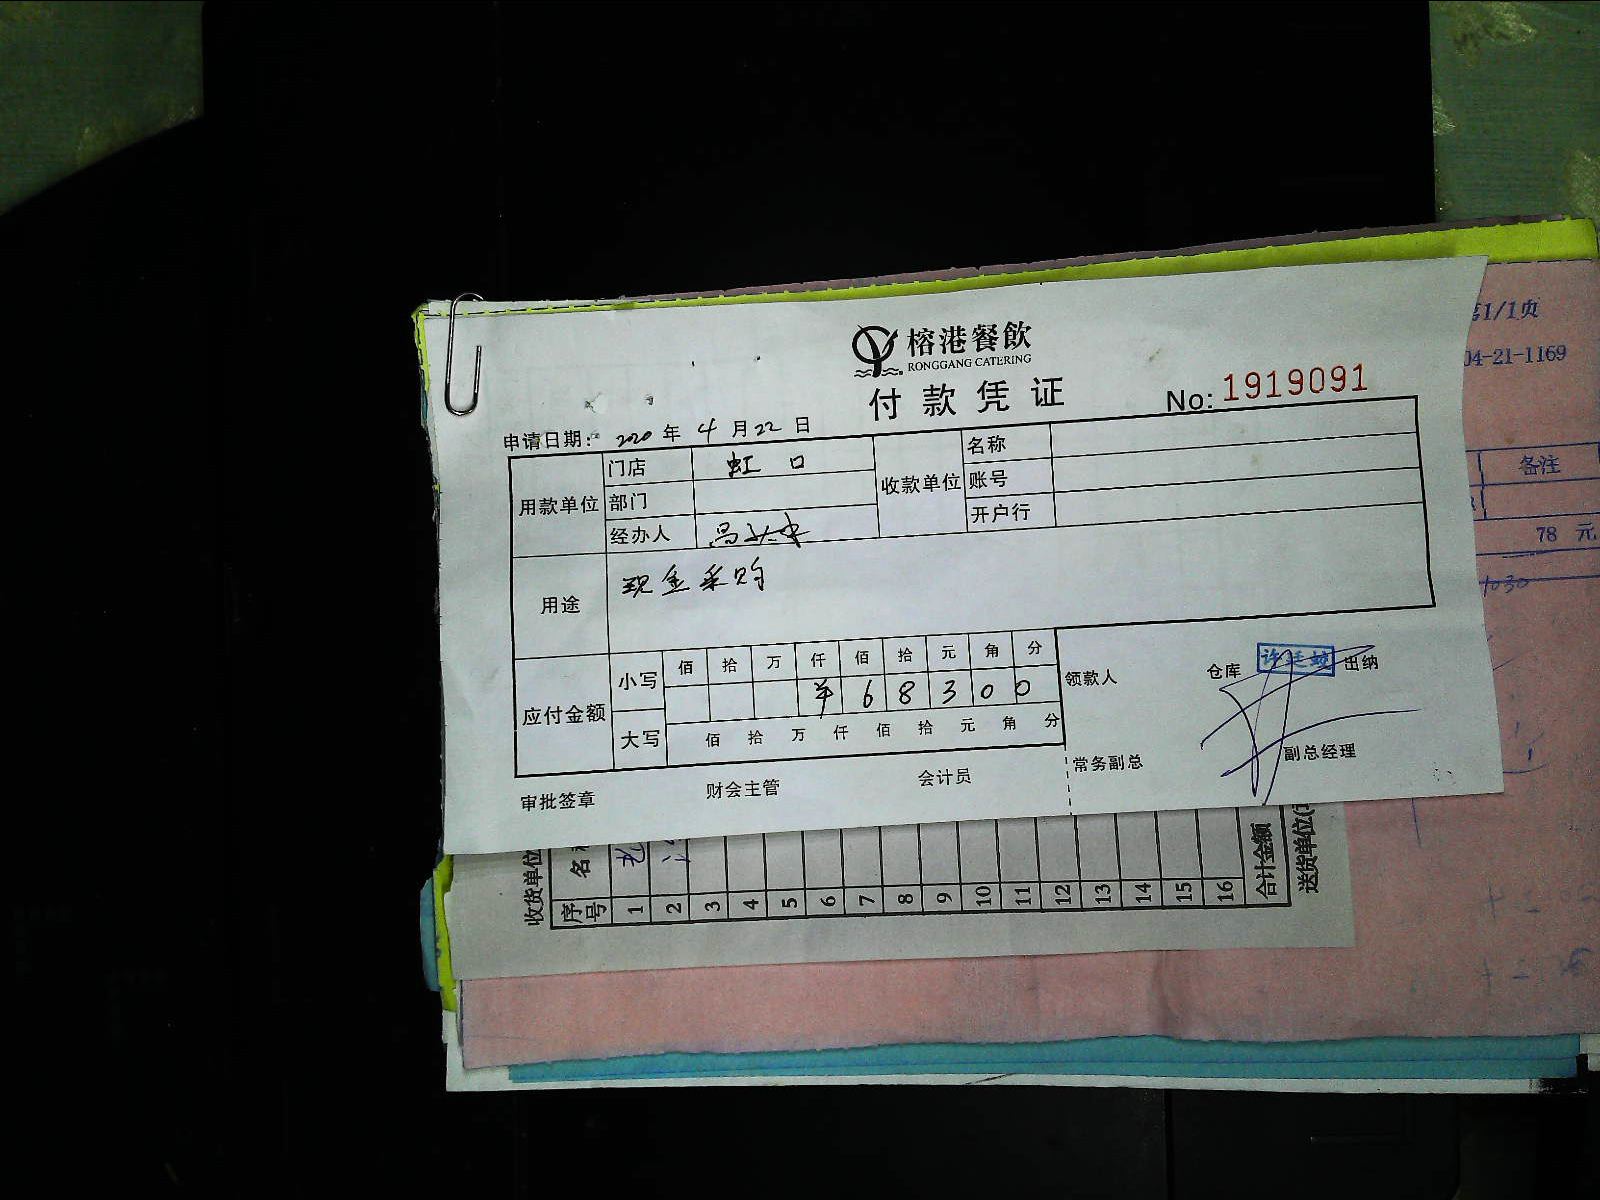 榕港餐飲
RONGGANG CATERING
付款凭证
No: 1919091
申请日期: 2020 年 4 月 22 日
用款单位 门店 虹口 收款单位 名称
部门 账号
经办人 开户行
用途 现金采购
应付金额 小写 佰 拾 万 仟 佰 拾 元 角 分
¥ 6 8 3 0 0
大写 佰 拾 万 仟 佰 拾 元 角 分
领款人 仓库 出纳
常务副总 副总经理
审批签章 财会主管 会计员
第1/1页
04-21-1169
备注
78 元
1030
收货单位
序号 名
1 2 3 4 5 6 7 8 9 10 11 12 13 14 15 16
合计金额
送货单位